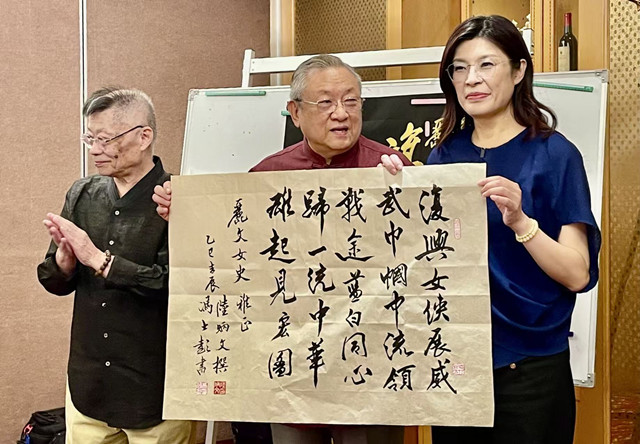 復興女俠展威
武巾幗中流領
戰途藍白同心
歸一統中華
雄起見宏圖
麗文女史 雅正
陸炳文撰
乙巳 辰 馮士彭書